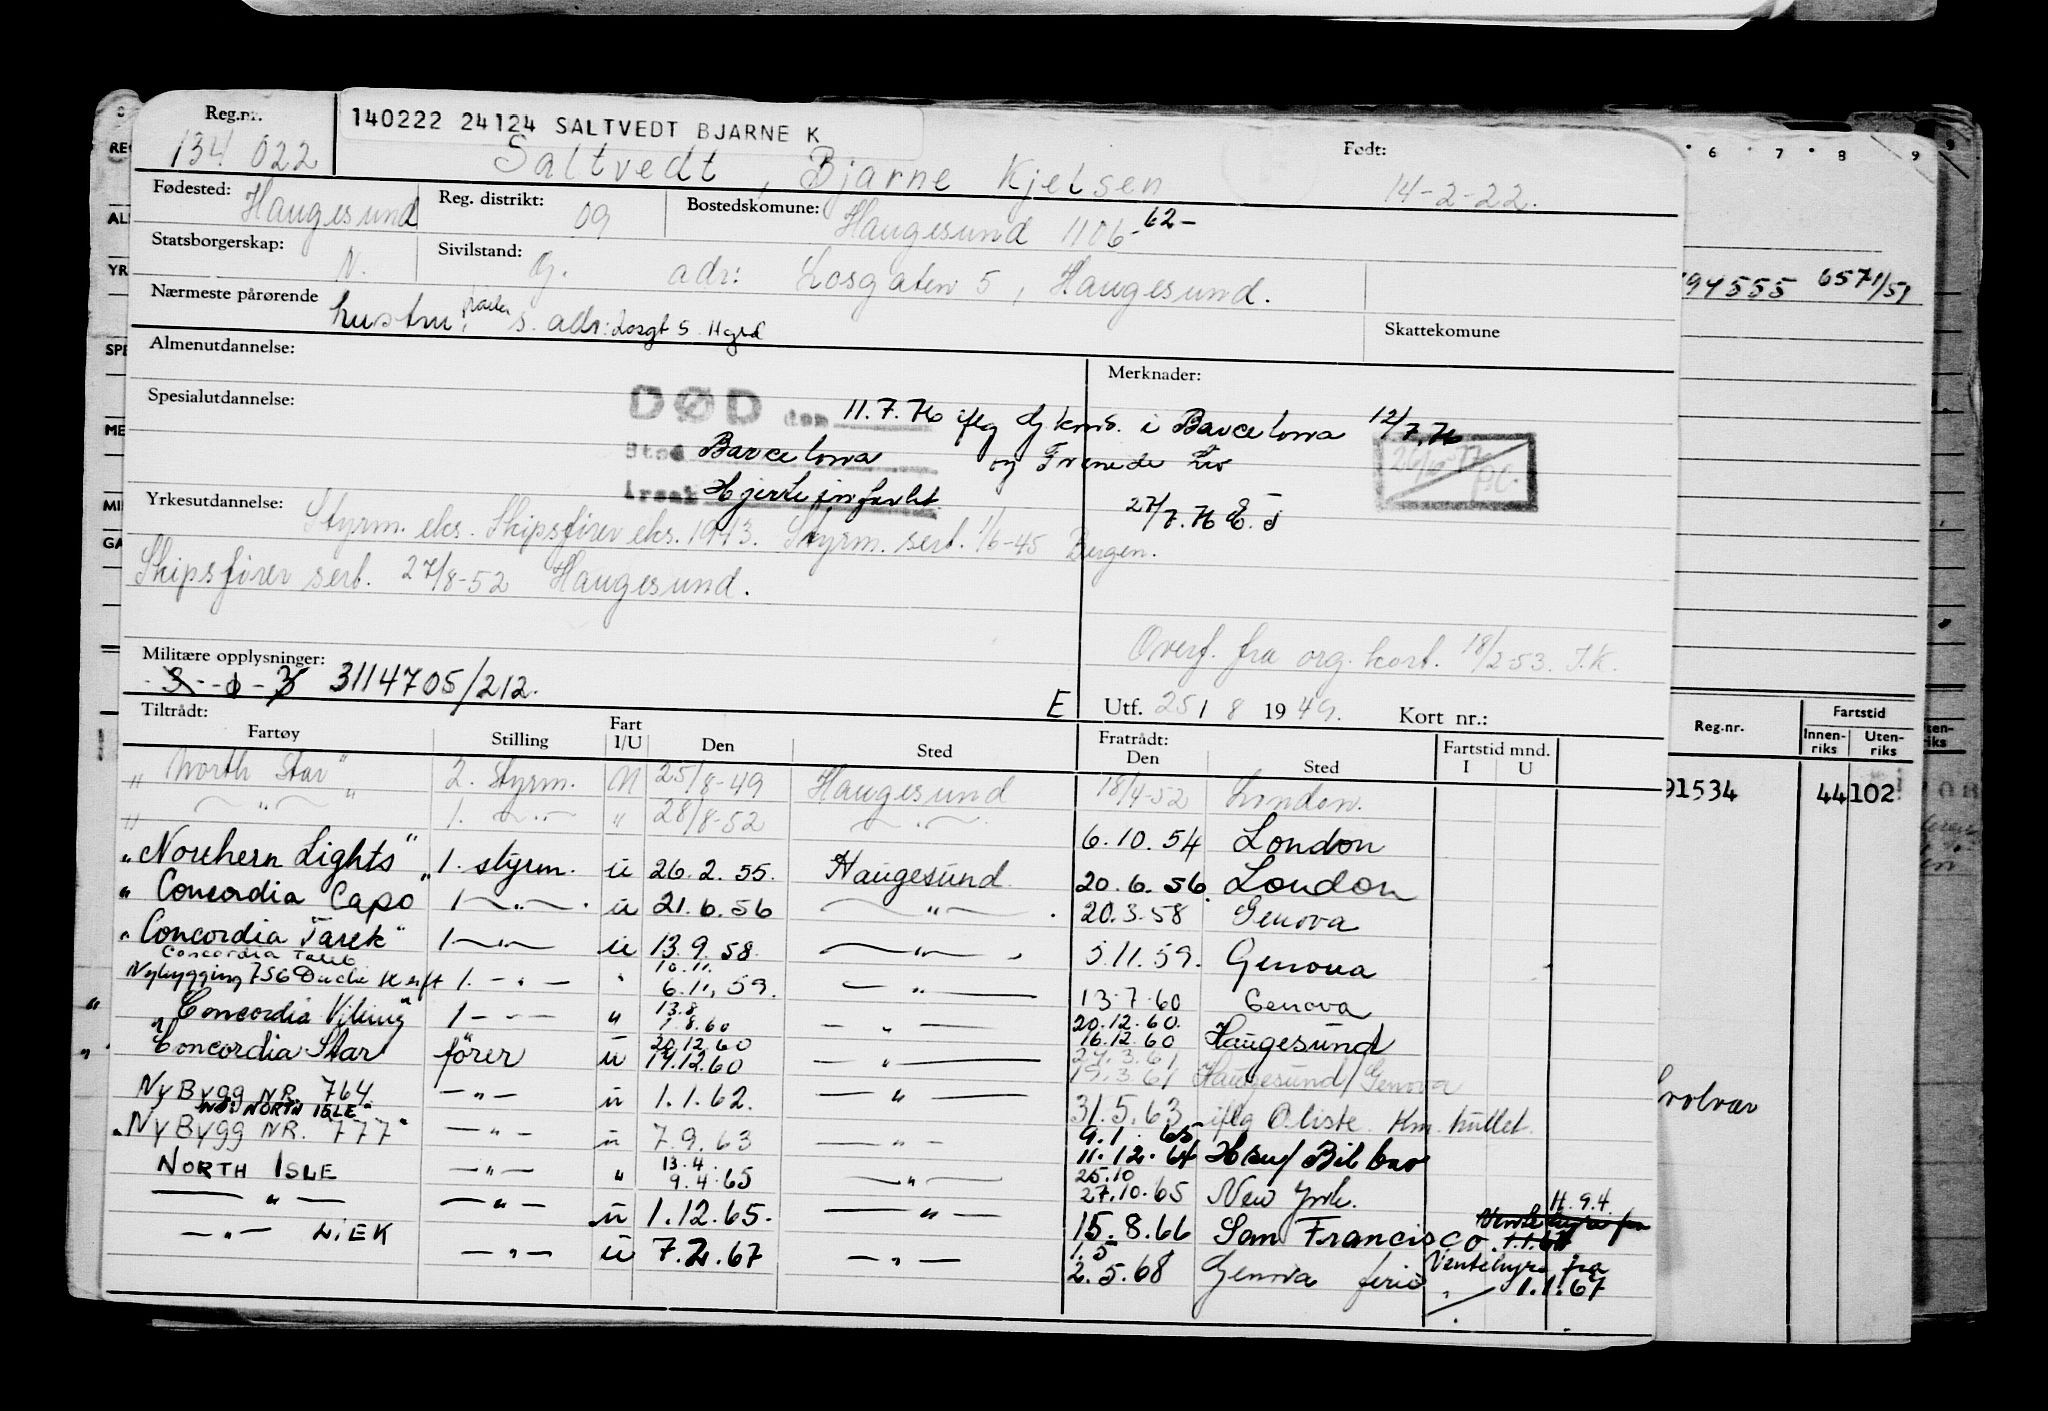 Reg.nr.
140222 24124 SALTVEDT BJARNE K
Født:
134 022
Saltvedt, Bjarne Kjelsen
14-2-22.
Fødested: Haugesund
Reg. distrikt: 09
Bostedskomune: Haugesund 1106-62-
Statsborgerskap: N.
Sivilstand: G.
adr: Losgaten 5, Haugesund.
Nærmeste pårørende
hustru: s. adr: Losgt 5 Hgsd
Skattekomune
Almenutdannelse:
Merknader:
Spesialutdannelse:
DØD den 11.7.76 iflg Gj kons. i Barcelona 12/7.76
Sted Barcelona
årsak Hjerteinfarkt
27/7.76
Yrkesutdannelse: Styrm. eks. Skipsfører eks. 1943. Styrm. sert. 1/6-45 Bergen.
Skipsfører sert. 27/8-52 Haugesund.
Overf. fra org. kort. 18/2-53. J.K.
Militære opplysninger:
3114705/212.
E
Utf. 25/8 1949.
Kort nr.:
Tiltrådt:
Fartøy
Stilling
Fart I/U
Den
Sted
Fratrådt: Den
Sted
Fartstid mnd.
I U
"North Star" 2. Styrm. U 25/8-49 Haugesund 18/4-52 London.
" — " — " 1. — " — " 28/8-52 — " — 6.10.54 London
"Northern Lights" 1. styrm. u 26.2.55. Haugesund 20.6.56. London
"Concordia Capo" 1 — " — u 21.6.56 — " — 20.3.58 Genova
"Concordia Tarek" 1 — " — u 13.9.58. — " — 5.11.59. Genova
Concordia Taleb 10.11.
Nybygging 756 1. — " — " 6.11.59. — " — 13.7.60 Genova
13.8 20.12.60.
"Concordia Viking" 1 — " — " 1.8.60 — " — 16.12.60 Haugesund
20.12.60 24.3.61
"Concordia Star fører u 19.12.60 — " — 19.3.61 Haugesund/Genova
NyBygg NR. 764. — " — u 1.1.62. — " — 31.5.63 iflg O liste
"NORTH ISLE"
"NyBygg NR. 777" — " — u 7.9.63 — " — 9.1.65
11.12.64 Bilbao
13.4. 25.10
NORTH ISLE — " — " 9.4.65 — " — 27.10.65 New York.
— " — — " — u 1.12.65. — " — 15.8.66 San Francisco.
11.9.4.
1.5
— " — LIEK — " — u 7.2.67 — " — 2.5.68 Genova ferie
Ventehyre fra 1.1.67
6 7 8 9
194555 6571/51
Reg.nr.
Fartstid
Innenriks
Utenriks
91534 44 102